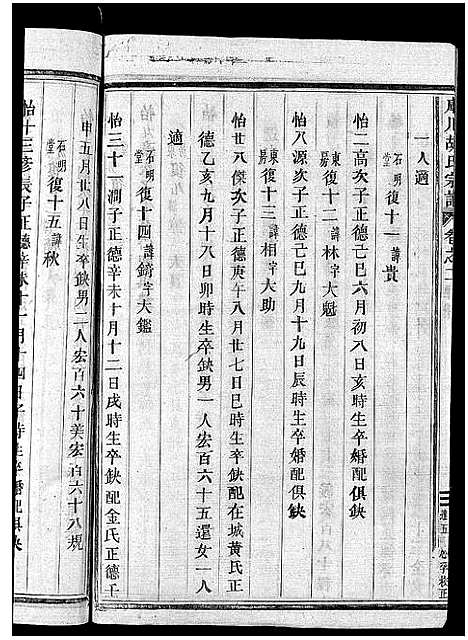 川胡氏宗譜 卷之二
一人適
石明堂 復十一 諱貴
怡二高次子正德己巳六月初八日亥時生卒婚配俱缺
東嘉 復十二 諱林字大魁
怡八源次子正德己巳九月十九日辰時生卒婚配俱缺
東嘉 復十三 諱相字大助
怡廿八傑次子正德庚午八月廿七日巳時生卒缺配在城黄氏正
德乙亥九月十八日卯時生卒缺男一人宏百六十五還女一人
適
石明堂 復十四 諱錡字大鑑
怡三十一澗子正德辛未十月十二日戌時生卒缺配金氏正德壬
申五月廿八日生卒缺男二人宏百六十美宏百六十八規
石明堂 復十五 諱秋
怡十三彦長子正德辛未十二月十四日子時生卒婚配俱缺